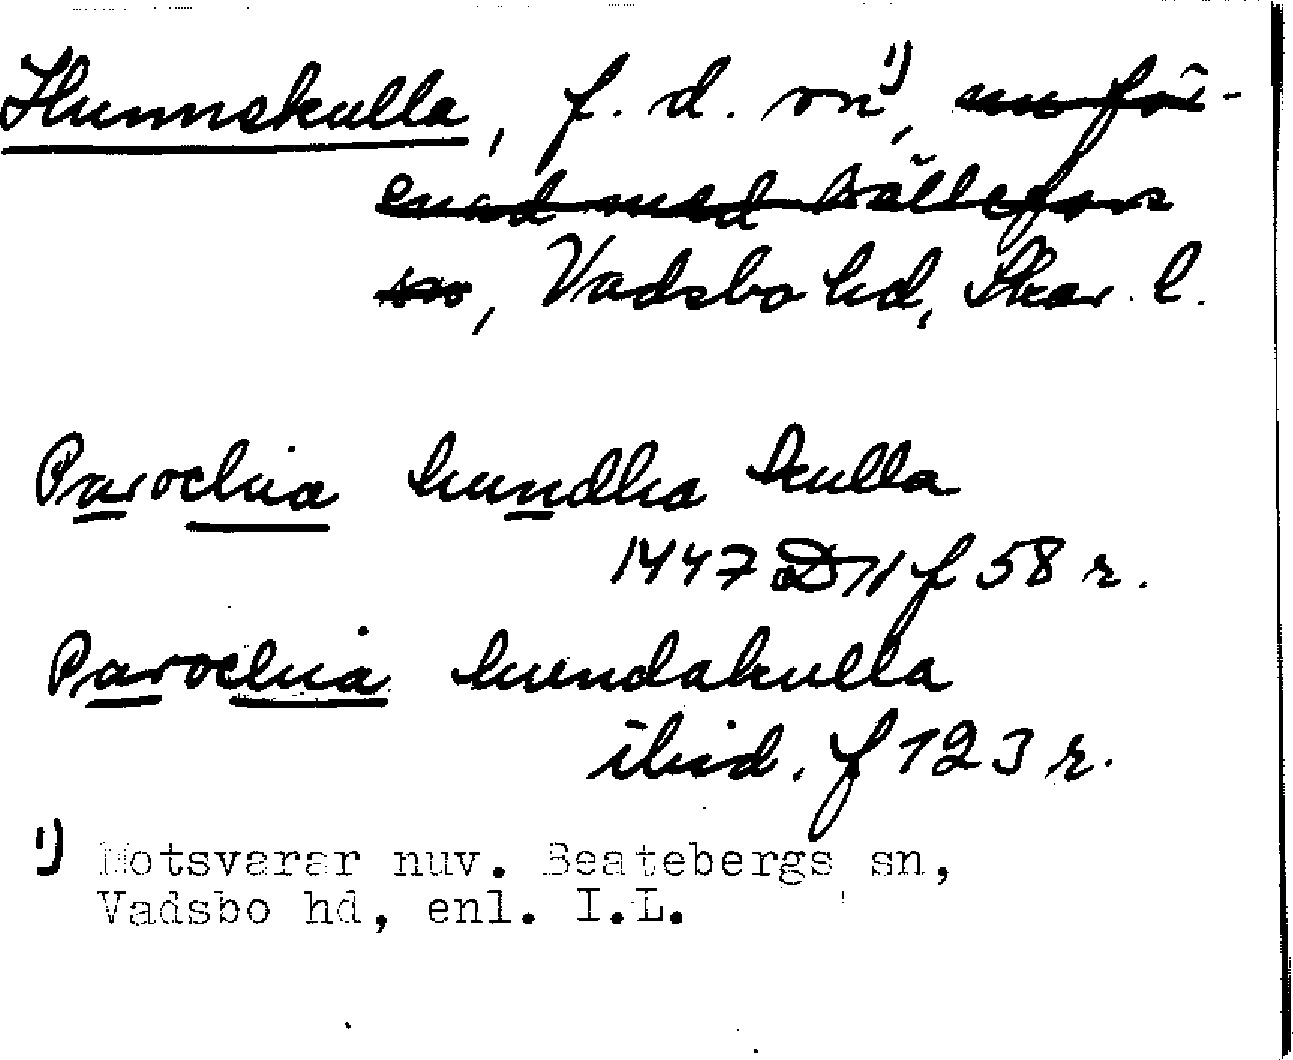 Hunnskulla, f. d. sn¹⁾, nu för-
enad med Bällefors
sn, Vadsbo hd, Skar. l.
Parochia hundha kulla
1447 D 11 f 58 r.
Parochia hundakulla
ibid. f 123 r.
1) Motsvarar nuv. Beatebergs sn,
Vadsbo hd, enl. I.L.